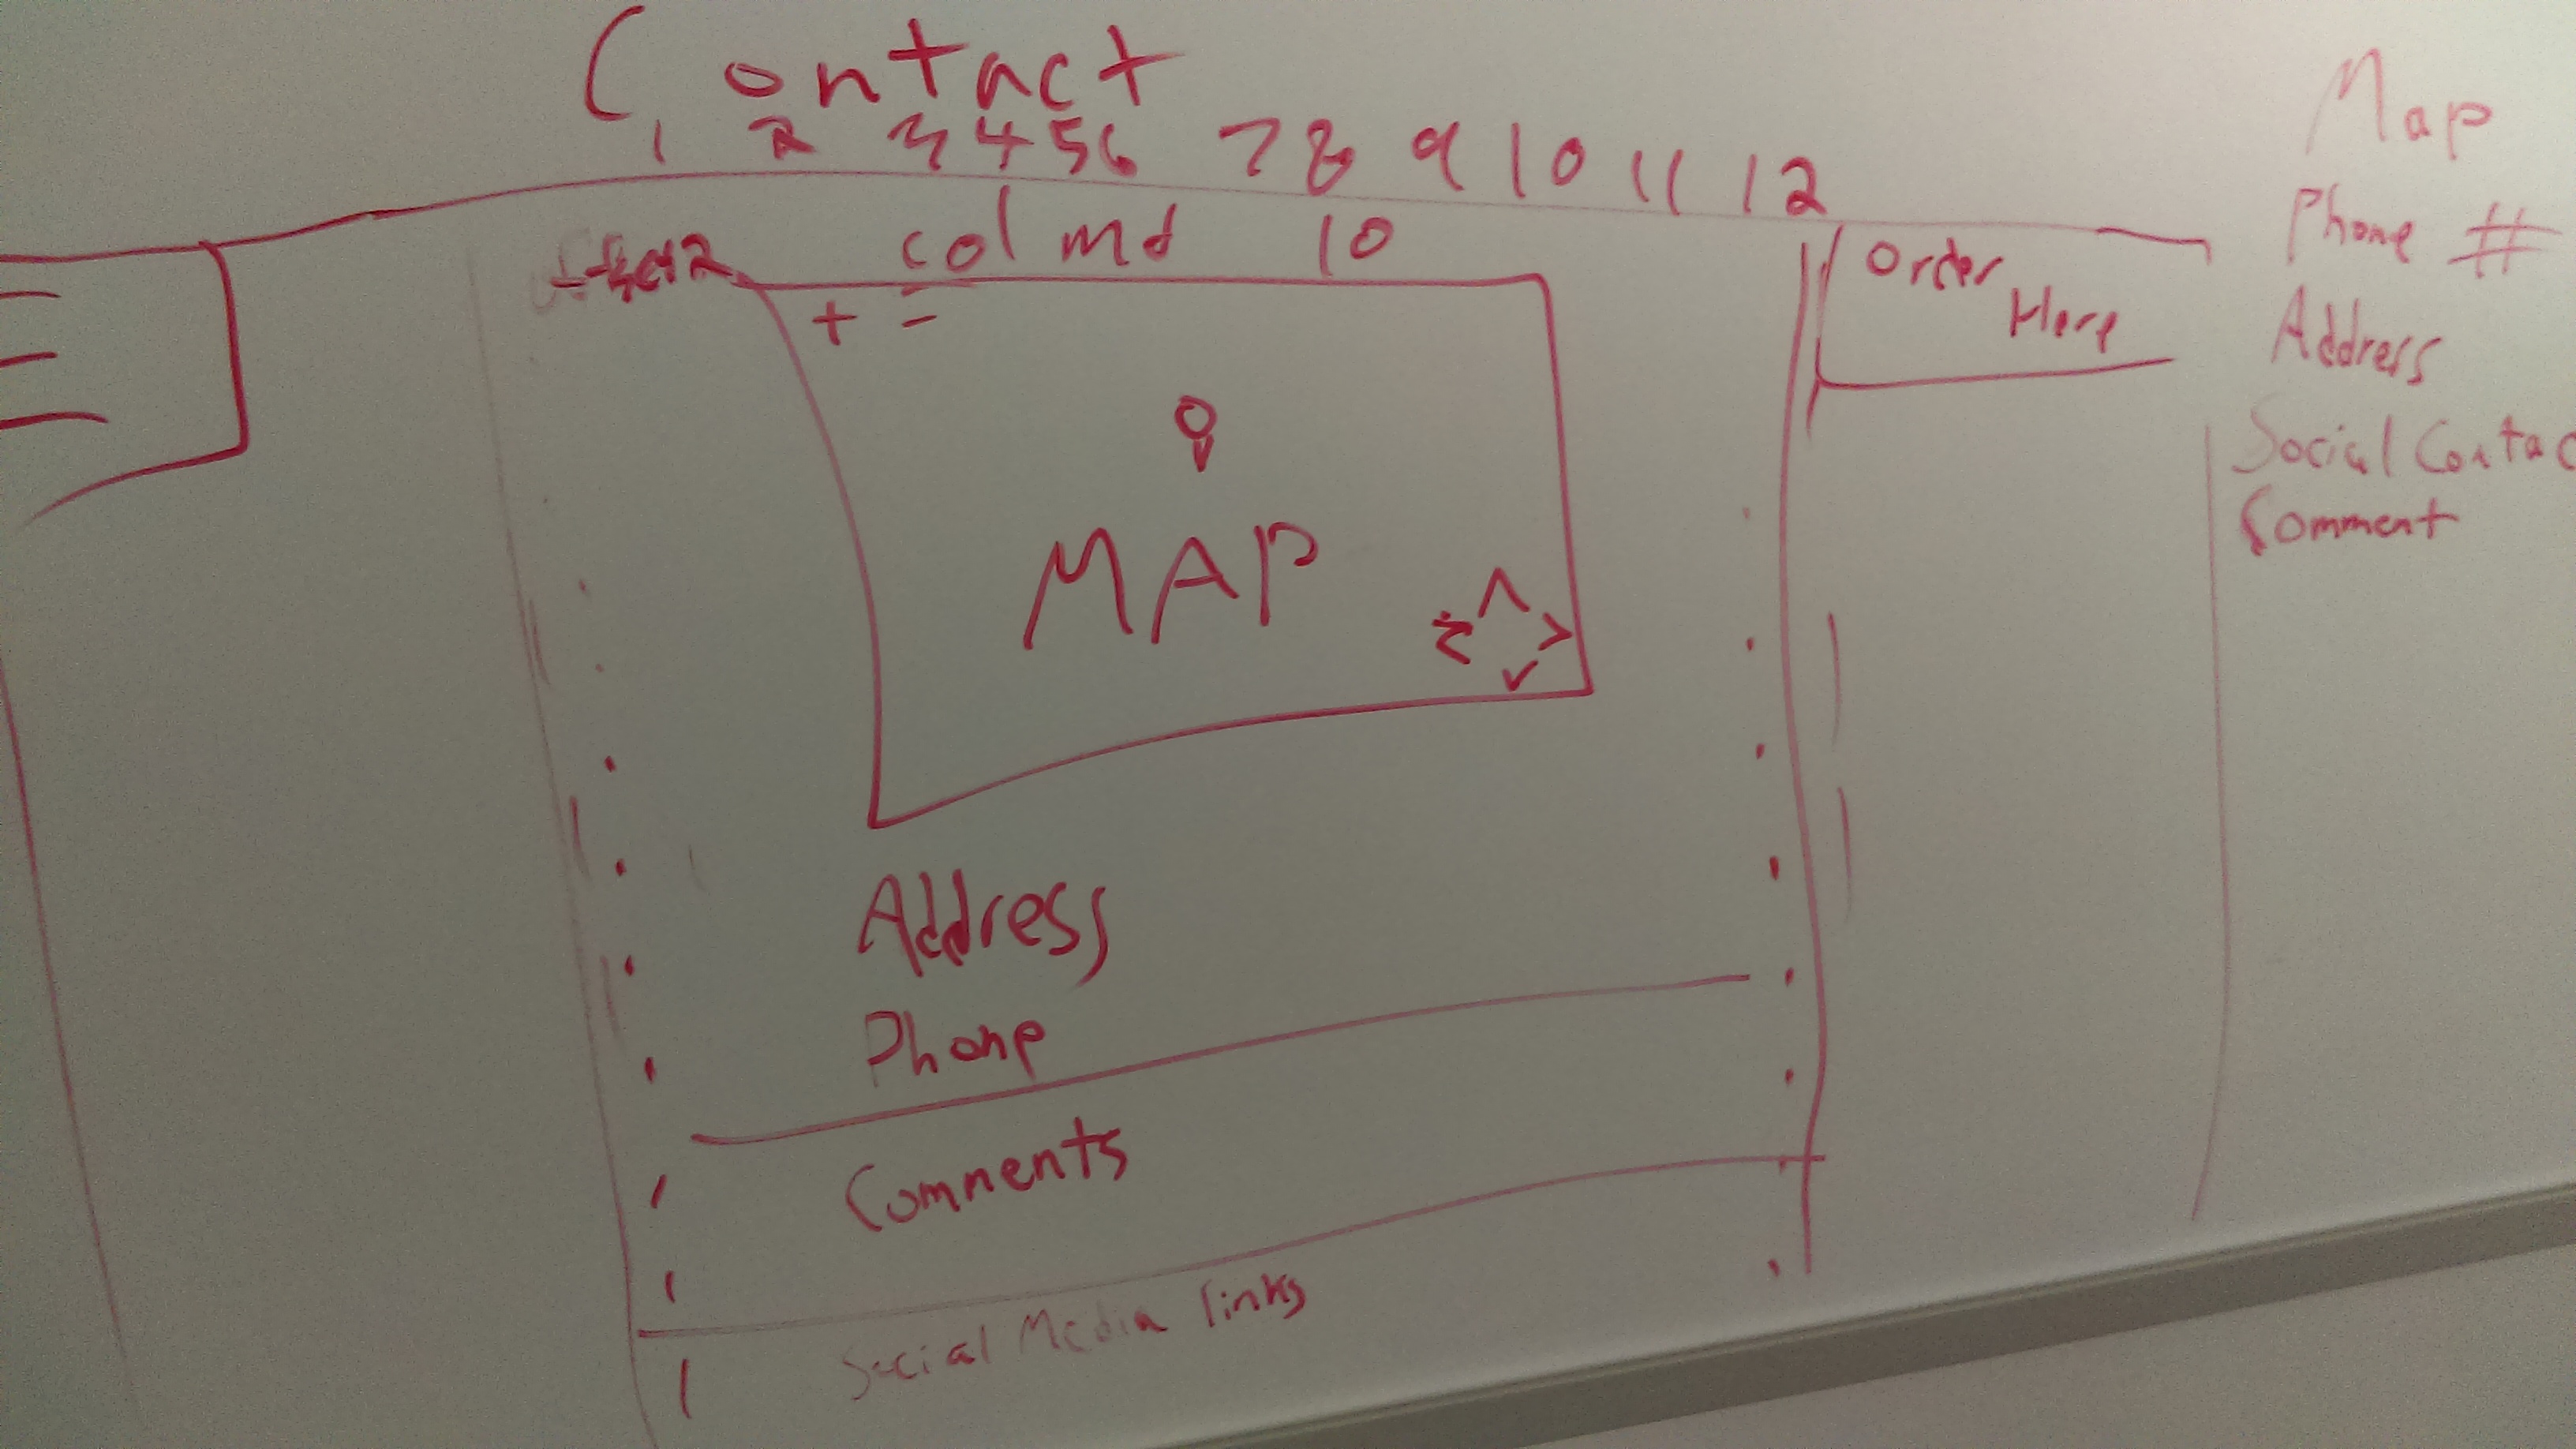 Contact
1 2 3 4 5 6 7 8 9 10 11 12
col md 10
+ -
MAP
Address
Phone
Comments
Social Media links
Order
Here
Map
Phone #
Address
Social Contac
Comment